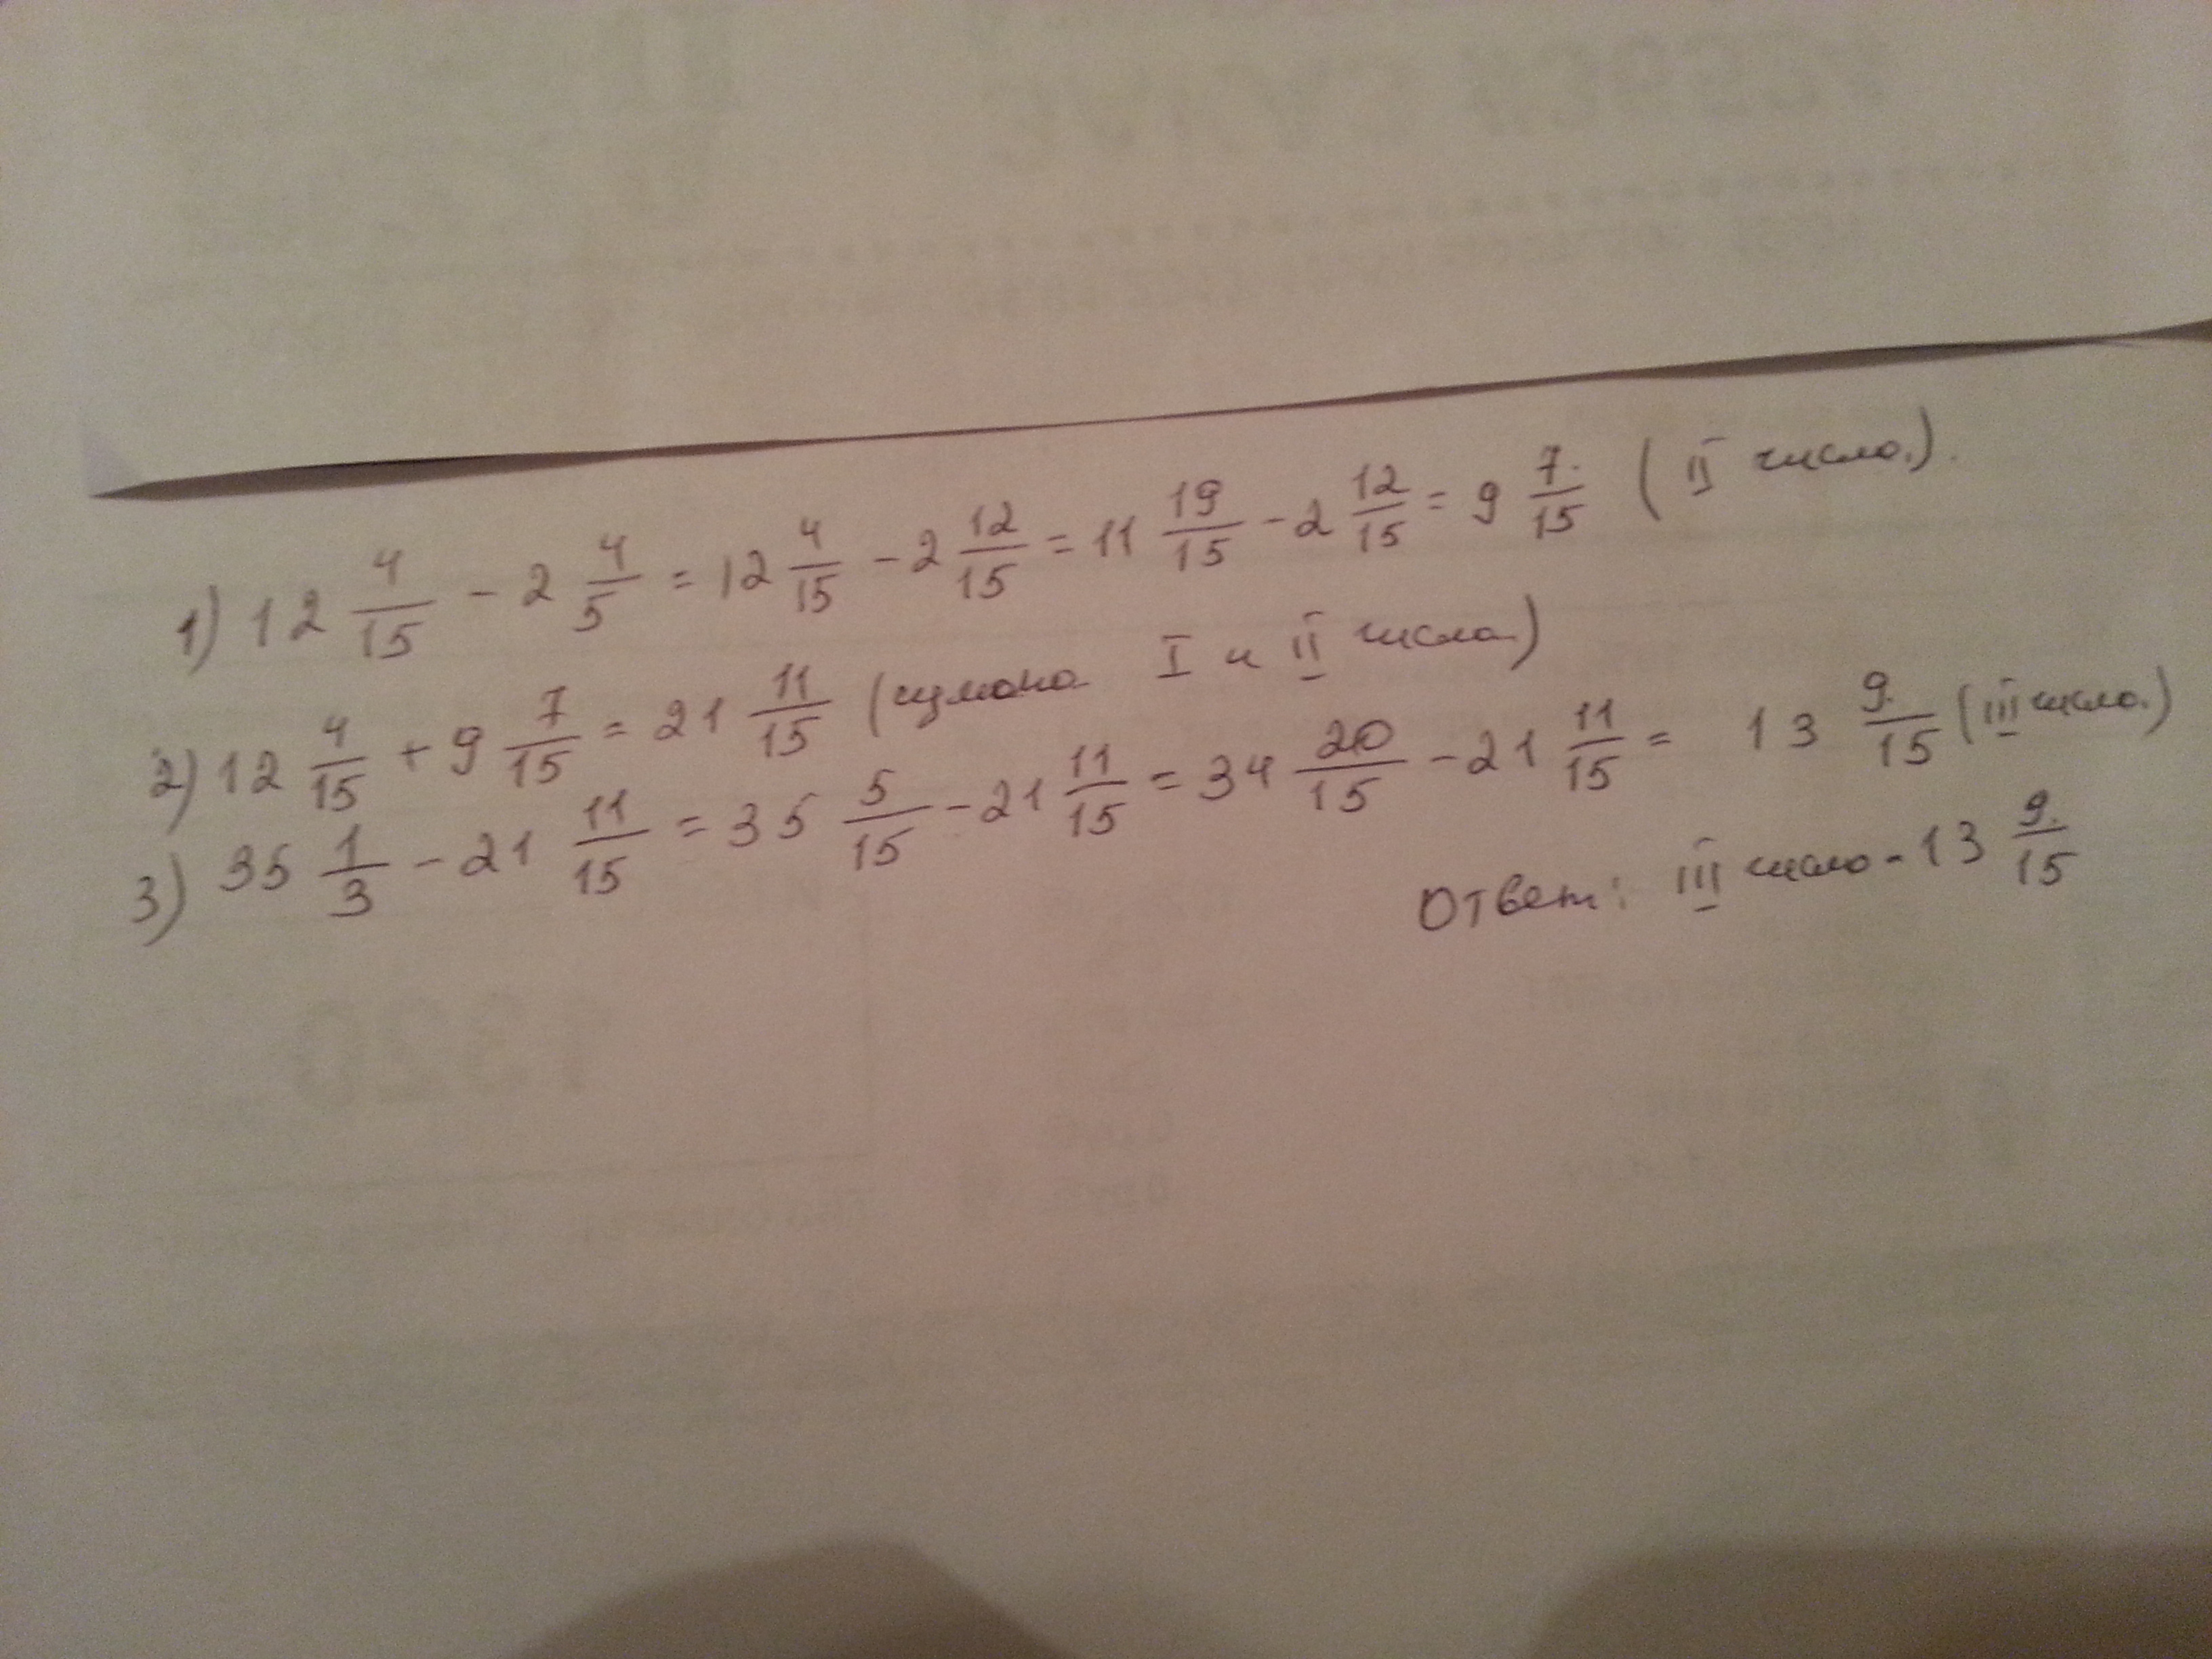 1) 12 4/15 - 2 4/5 = 12 4/15 - 2 12/15 = 11 19/15 - 2 12/15 = 9 7/15 (II число.).
2) 12 4/15 + 9 7/15 = 21 11/15 (сумма I и II числа)
3) 35 1/3 - 21 11/15 = 35 5/15 - 21 11/15 = 34 20/15 - 21 11/15 = 13 9/15 (III число.)
Ответ: III число - 13 9/15
1320